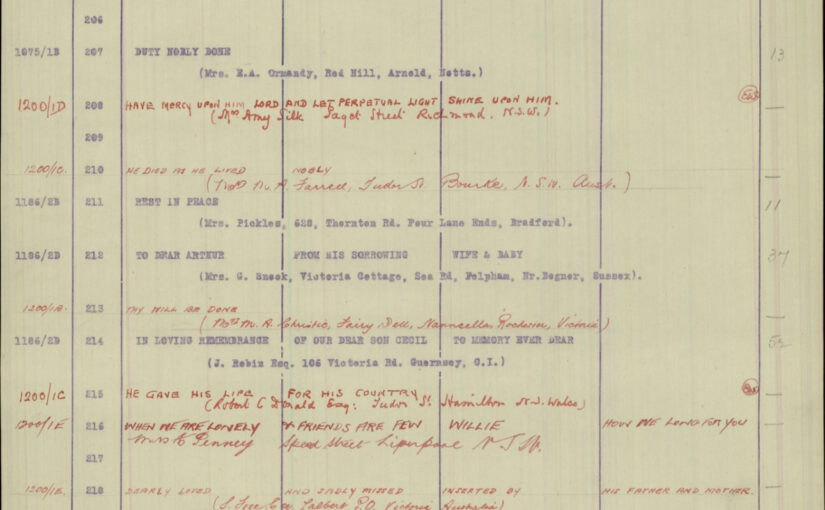 206
1075/1B 207 DUTY NOBLY DONE 13
(Mrs. E.A. Ormandy, Red Hill, Arnold, Notts.)
1200/1D 208 HAVE MERCY UPON HIM LORD AND LET PERPETUAL LIGHT SHINE UPON HIM.
(Mrs Amy Silk Paget Street Richmond. N.S.W.)
209
1200/1C. 210 HE DIED AS HE LIVED NOBLY
(Mrs M. A. Farrell, Tudor St Bourke, N.S.W. Aust.)
1186/2B 211 REST IN PEACE 11
(Mrs. Pickles, 628, Thornton Rd. Four Lane Ends, Bradford).
1186/2D 212 TO DEAR ARTHUR FROM HIS SORROWING WIFE & BABY 37
(Mrs. G. Snook, Victoria Cottage, Sea Rd, Felpham, Nr.Bognor, Sussex).
1200/1B. 213 THY WILL BE DONE
(Mrs M. A. Christie, Fairy Dell, Nanneella, Rochester, Victoria)
1186/2D 214 IN LOVING REMEMBRANCE OF OUR DEAR SON CECIL TO MEMORY EVER DEAR
(J. Robin Esq. 106 Victoria Rd. Guernsey, C.I.)
1200/1C 215 HE GAVE HIS LIFE FOR HIS COUNTRY
(Robert C Donald Esq: Tudor St. Hamilton N.S. Wales)
1200/1E 216 WHEN WE ARE LONELY & FRIENDS ARE FEW WILLIE HOW WE LONG FOR YOU
Mrs E Penney Speed Street Liverpool N.S.W.
217
1200/1E. 218 DEARLY LOVED AND SADLY MISSED INSERTED BY HIS FATHER AND MOTHER.
Talbot P.O. Victoria Australia)